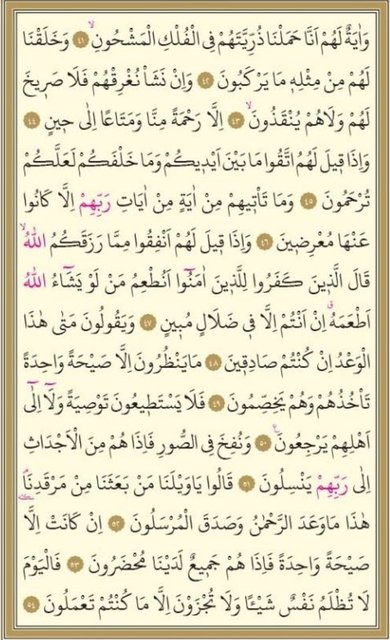 وَاٰيَةٌ لَهُمْ اَنَّا حَمَلْنَا ذُرِّيَّتَهُمْ فِي الْفُلْكِ الْمَشْحُونِۙ ﴿٤١﴾ وَخَلَقْنَا
لَهُمْ مِنْ مِثْلِه۪ مَا يَرْكَبُونَ ﴿٤٢﴾ وَاِنْ نَشَأْ نُغْرِقْهُمْ فَلَا صَر۪يخَ
لَهُمْ وَلَا هُمْ يُنْقَذُونَۙ ﴿٤٣﴾ اِلَّا رَحْمَةً مِنَّا وَمَتَاعًا اِلٰى ح۪ينٍ ﴿٤٤﴾
وَاِذَا ق۪يلَ لَهُمُ اتَّقُوا مَا بَيْنَ اَيْد۪يكُمْ وَمَا خَلْفَكُمْ لَعَلَّكُمْ
تُرْحَمُونَ ﴿٤٥﴾ وَمَا تَأْت۪يهِمْ مِنْ اٰيَةٍ مِنْ اٰيَاتِ رَبِّهِمْ اِلَّا كَانُوا
عَنْهَا مُعْرِض۪ينَ ﴿٤٦﴾ وَاِذَا ق۪يلَ لَهُمْ اَنْفِقُوا مِمَّا رَزَقَكُمُ اللّٰهُۙ
قَالَ الَّذ۪ينَ كَفَرُوا لِلَّذ۪ينَ اٰمَنُٓوا اَنُطْعِمُ مَنْ لَوْ يَشَٓاءُ اللّٰهُ
اَطْعَمَهُۗ اِنْ اَنْتُمْ اِلَّا ف۪ي ضَلَالٍ مُب۪ينٍ ﴿٤٧﴾ وَيَقُولُونَ مَتٰى هٰذَا
الْوَعْدُ اِنْ كُنْتُمْ صَادِق۪ينَ ﴿٤٨﴾ مَا يَنْظُرُونَ اِلَّا صَيْحَةً وَاحِدَةً
تَأْخُذُهُمْ وَهُمْ يَخِصِّمُونَ ﴿٤٩﴾ فَلَا يَسْتَط۪يعُونَ تَوْصِيَةً وَلَٓا اِلٰٓى
اَهْلِهِمْ يَرْجِعُونَ۟ ﴿٥٠﴾ وَنُفِخَ فِي الصُّورِ فَاِذَا هُمْ مِنَ الْاَجْدَاثِ
اِلٰى رَبِّهِمْ يَنْسِلُونَ ﴿٥١﴾ قَالُوا يَا وَيْلَنَا مَنْ بَعَثَنَا مِنْ مَرْقَدِنَاۢ
هٰذَا مَا وَعَدَ الرَّحْمٰنُ وَصَدَقَ الْمُرْسَلُونَ ﴿٥٢﴾ اِنْ كَانَتْ اِلَّا
صَيْحَةً وَاحِدَةً فَاِذَا هُمْ جَم۪يعٌ لَدَيْنَا مُحْضَرُونَ ﴿٥٣﴾ فَالْيَوْمَ
لَا تُظْلَمُ نَفْسٌ شَيْـًٔا وَلَا تُجْزَوْنَ اِلَّا مَا كُنْتُمْ تَعْمَلُونَ ﴿٥٤﴾